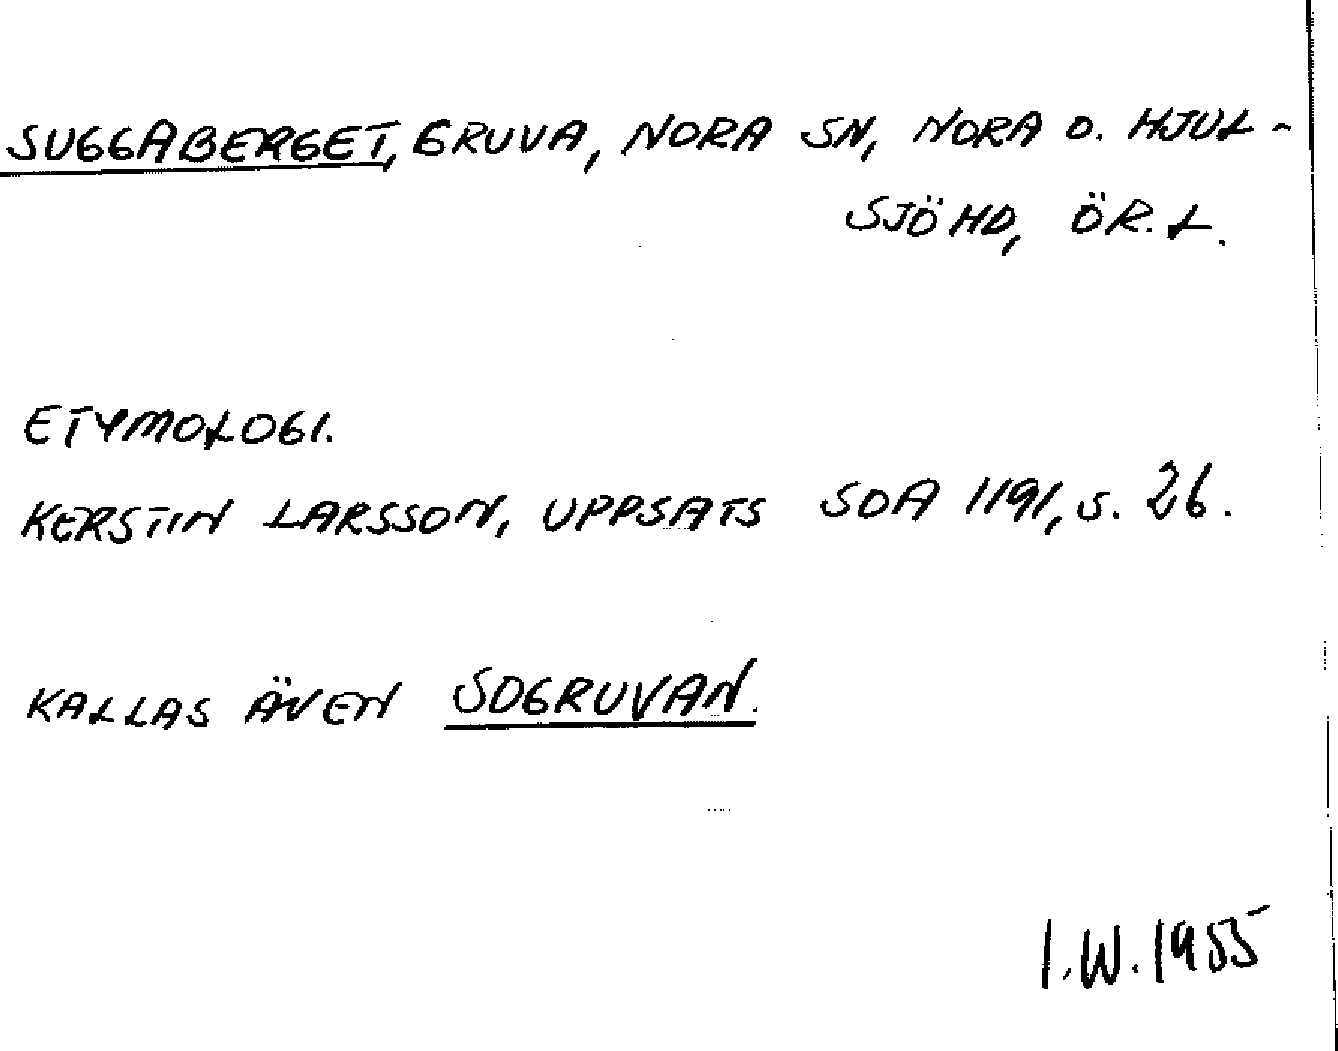 SUGGABERGET, GRUVA, NORA SN, NORA O. HJUL-
SJÖ HD, ÖR. L.
ETYMOLOGI.
KERSTIN LARSSON, UPPSATS SOA 1191, S. 26.
KALLAS ÄVEN SOGRUVAN.
I. W. 1955